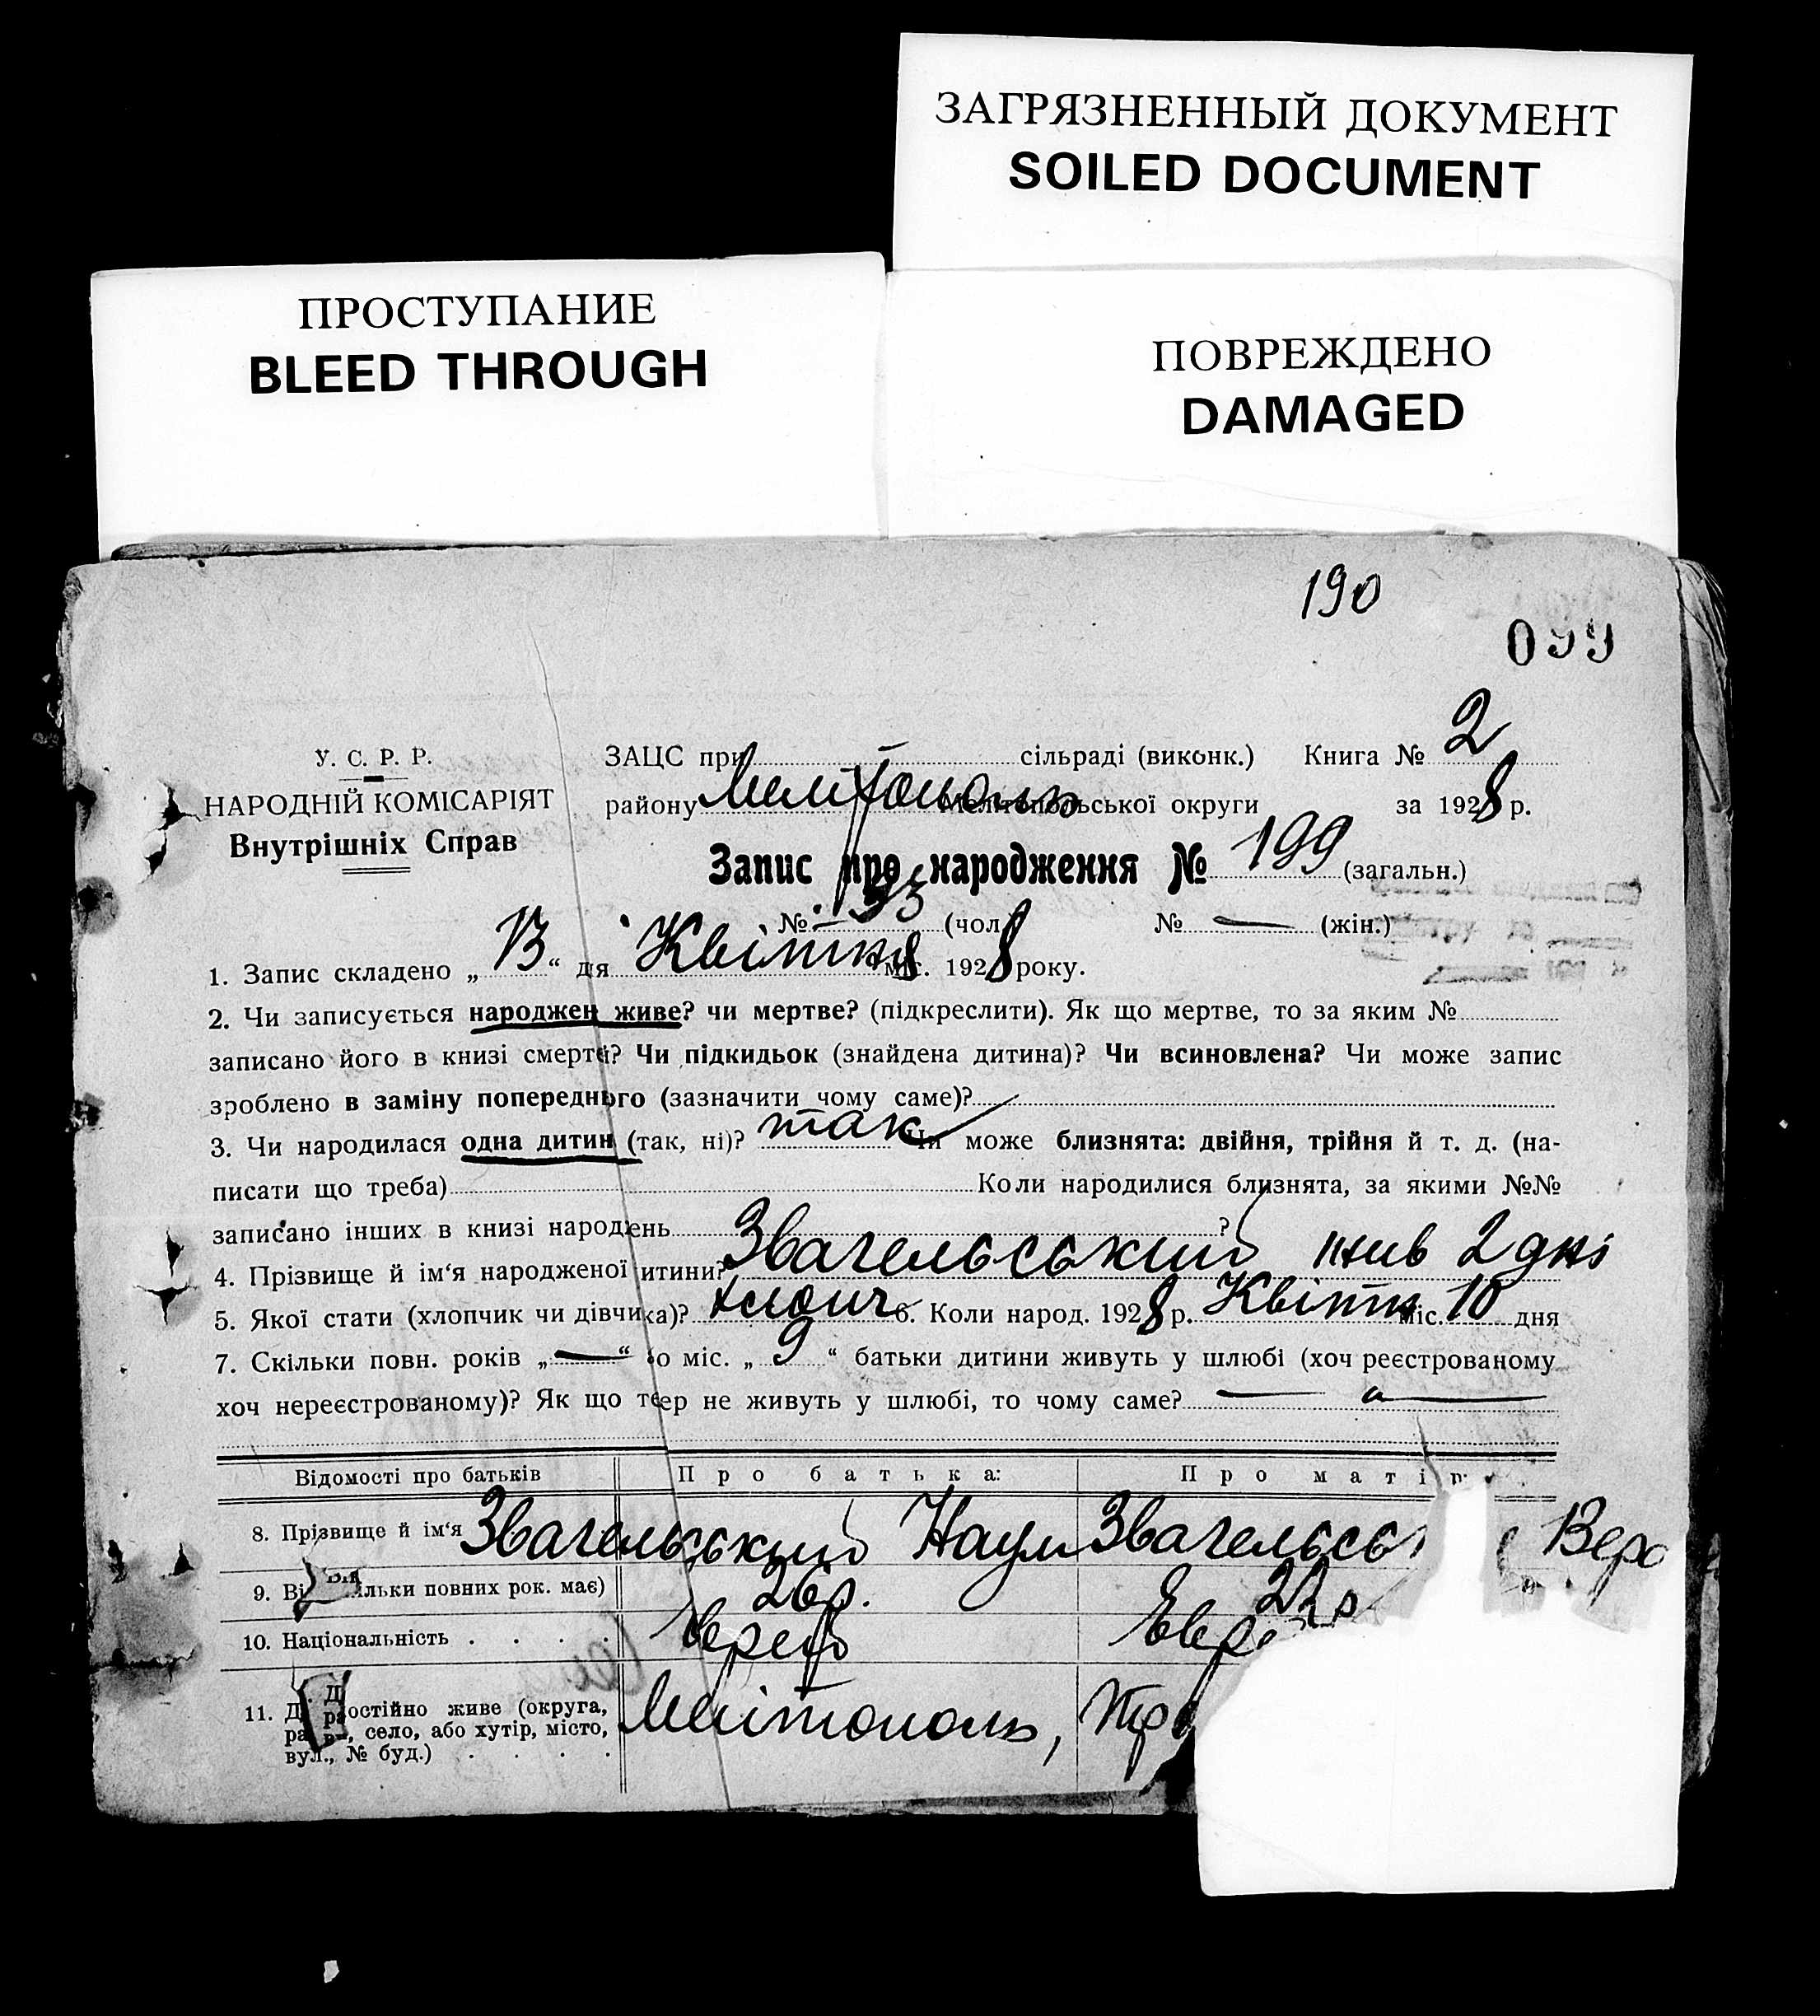 ЗАГРЯЗНЕННЫЙ ДОКУМЕНТ
SOILED DOCUMENT
ПРОСТУПАНИЕ
BLEED THROUGH
ПОВРЕЖДЕНО
DAMAGED
190
099
У. С. Р. Р.
НАРОДНІЙ КОМІСАРІЯТ
Внутрішніх Справ
ЗАЦС при — сільраді (виконк.) Книга № 2
району Мелітополь Мелітопольської округи за 1928 р.
Запис про народження № 199 (загальн.)
№ 93 (чол.) № — (жін.)
1. Запис складено „13“ дня Квітня міс. 1928 року.
2. Чи записується народжен живе? чи мертве? (підкреслити). Як що мертве, то за яким №
записано його в книзі смерти? Чи підкидьок (знайдена дитина)? Чи всиновлена? Чи може запис
зроблено в заміну попереднього (зазначити чому саме)?
3. Чи народилася одна дитин (так, ні)? так Чи може близнята: двійня, трійня й т. д. (на-
писати що треба) Коли народилися близнята, за якими №№
записано інших в книзі народень ?
4. Прізвище й ім‘я народженої итини? Звагельський жив 2 дні
5. Якої стати (хлопчик чи дівчика)? хлопч 6. Коли народ. 1928 р. Квітн міс. 10 дня
7. Скільки повн. років „—“ о міс. „9“ батьки дитини живуть у шлюбі (хоч реєстрованому
хоч нереєстрованому)? Як що теер не живуть у шлюбі, то чому саме? —
Відомості про батьків Про батька: Про матір:
8. Прізвище й ім‘я Звагельський Наум Звагельсь Вера
9. Ві льки повних рок. має) 26 р. 22 р
10. Національність . . . . Єврей Євре
11. Д остійно живе (округа,
ра , село, або хутір, місто,
вул., № буд.) . . . .
Мелітополь,